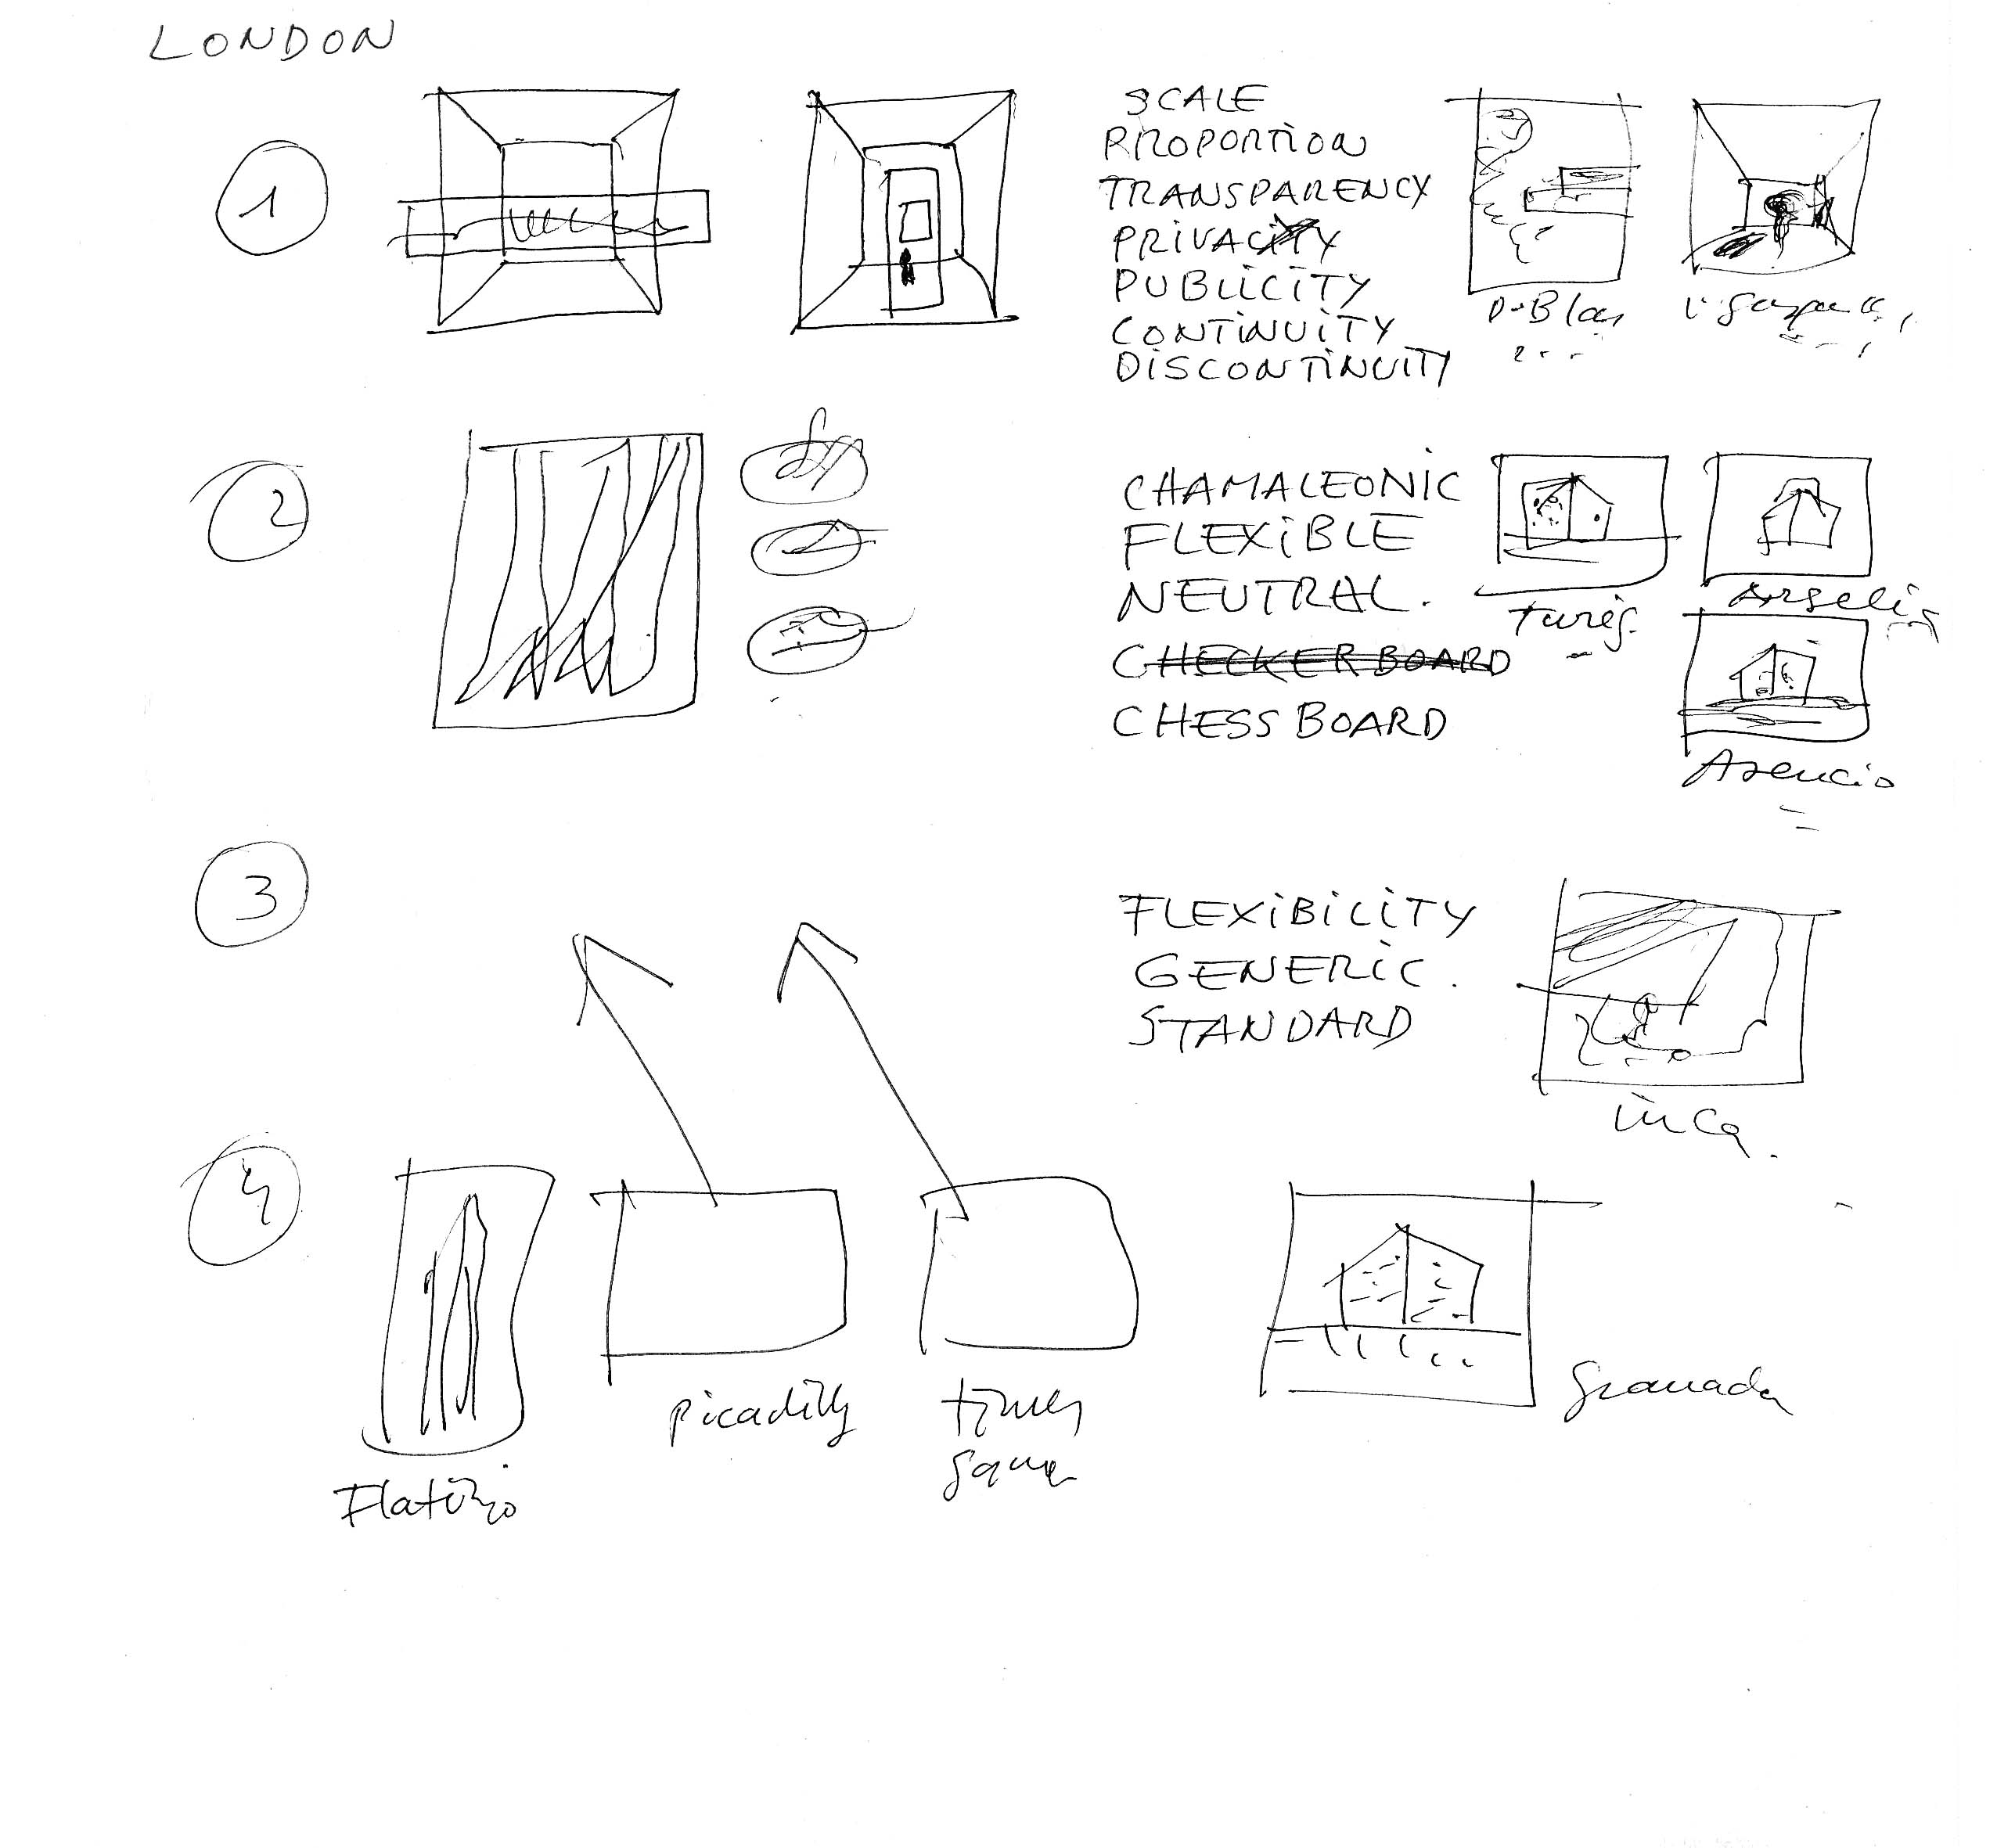 LONDON
1
SCALE
PROPORTION
TRANSPARENCY
PRIVACITY
PUBLICITY
CONTINUITY
DISCONTINUITY
D.Blas
2
CHAMALEONIC
FLEXIBLE
NEUTRAL.
CHECKERBOARD
CHESS BOARD
Turég.
Asencio
3
FLEXIBILITY
GENERIC.
STANDARD
inca.
4
picadilly
times
square
Granada